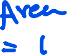 Area
= 1